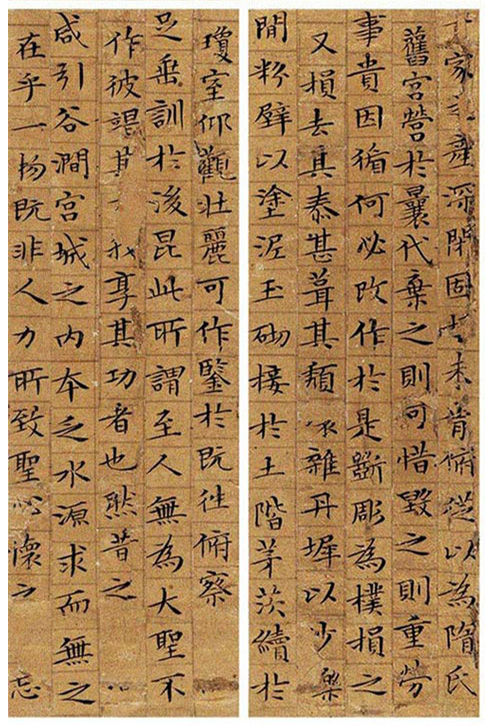 家產深閉固未肯俯從以為隋氏
舊宮營於曩代棄之則可惜毀之則重勞
事貴因循何必改作於是斲彫為樸損之
又損去其泰甚葺其頹雜丹墀以沙礫
間粉壁以塗泥玉砌接於土階茅茨續於
瓊室仰觀壯麗可作鑒於既往俯察
足垂訓於後昆此所謂至人無為大聖不
作彼竭其我享其功者也然昔之
咸引谷澗宮城之內本乏水源求而無之
在乎一物既非人力所致聖心懷之忘